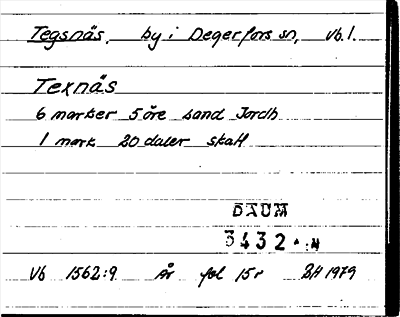 Tegsnäs, by i Degerfors sn, Vb.l.
Texnäs
6 marker 5 öre sand Jordh
1 mark 20 daler skatt
DAUM
3432 :4
Vb 1562:9 År fol 15r BH 1979